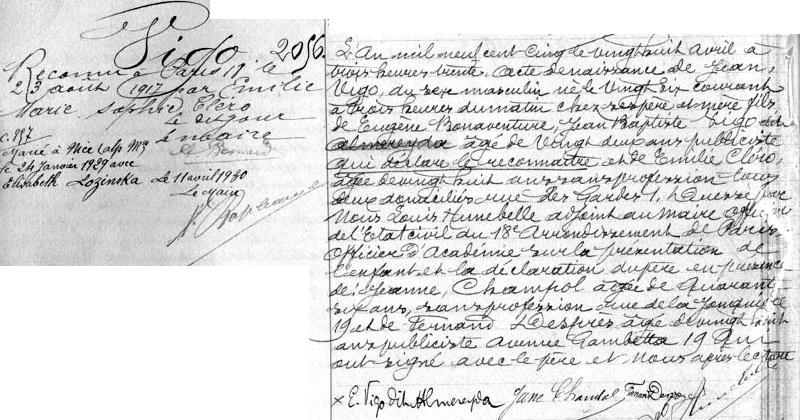 Vigo 2056.
Reconnu à Paris 17e le
23 août 1917 par Emilie
Marie Sophie Cléro
le
Le Maire
Marié à Nice Alp Mes
le 24 Janvier 1929 avec
Elisabeth Lozinska Le 11 avril 1930
Le Maire
L'An mil neuf cent cinq le vingt huit avril à
trois heures trente. Acte de naissance de Jean
Vigo, du sexe masculin né le vingt six courant
à trois heures du matin chez ses père et mère fils
de Eugène Bonaventure, Jean Baptiste Vigo dit
almereyda âgé de vingt deux ans publiciste
qui déclare le reconnaitre et de Emilie Cléro,
âgée de vingt huit ans sans profession tous
deux domiciliés rue des Gardes 1, Dressé par
Nous Louis Hunebelle adjoint au maire officier
de l'Etat civil du 18e Arrondissement de Paris
Officier d'Académie sur la présentation de
l'enfant et la déclaration du père en présence
de: Jeanne, Champol âgée de quarante
six ans, sans profession rue de la
19 et de Fernand Desprès âgé de vingt huit
ans publiciste avenue Gambetta 19 Qui
ont signé avec le père et Nous après lecture
x E. Vigo dit Almereyda Jane Fernand Desprès